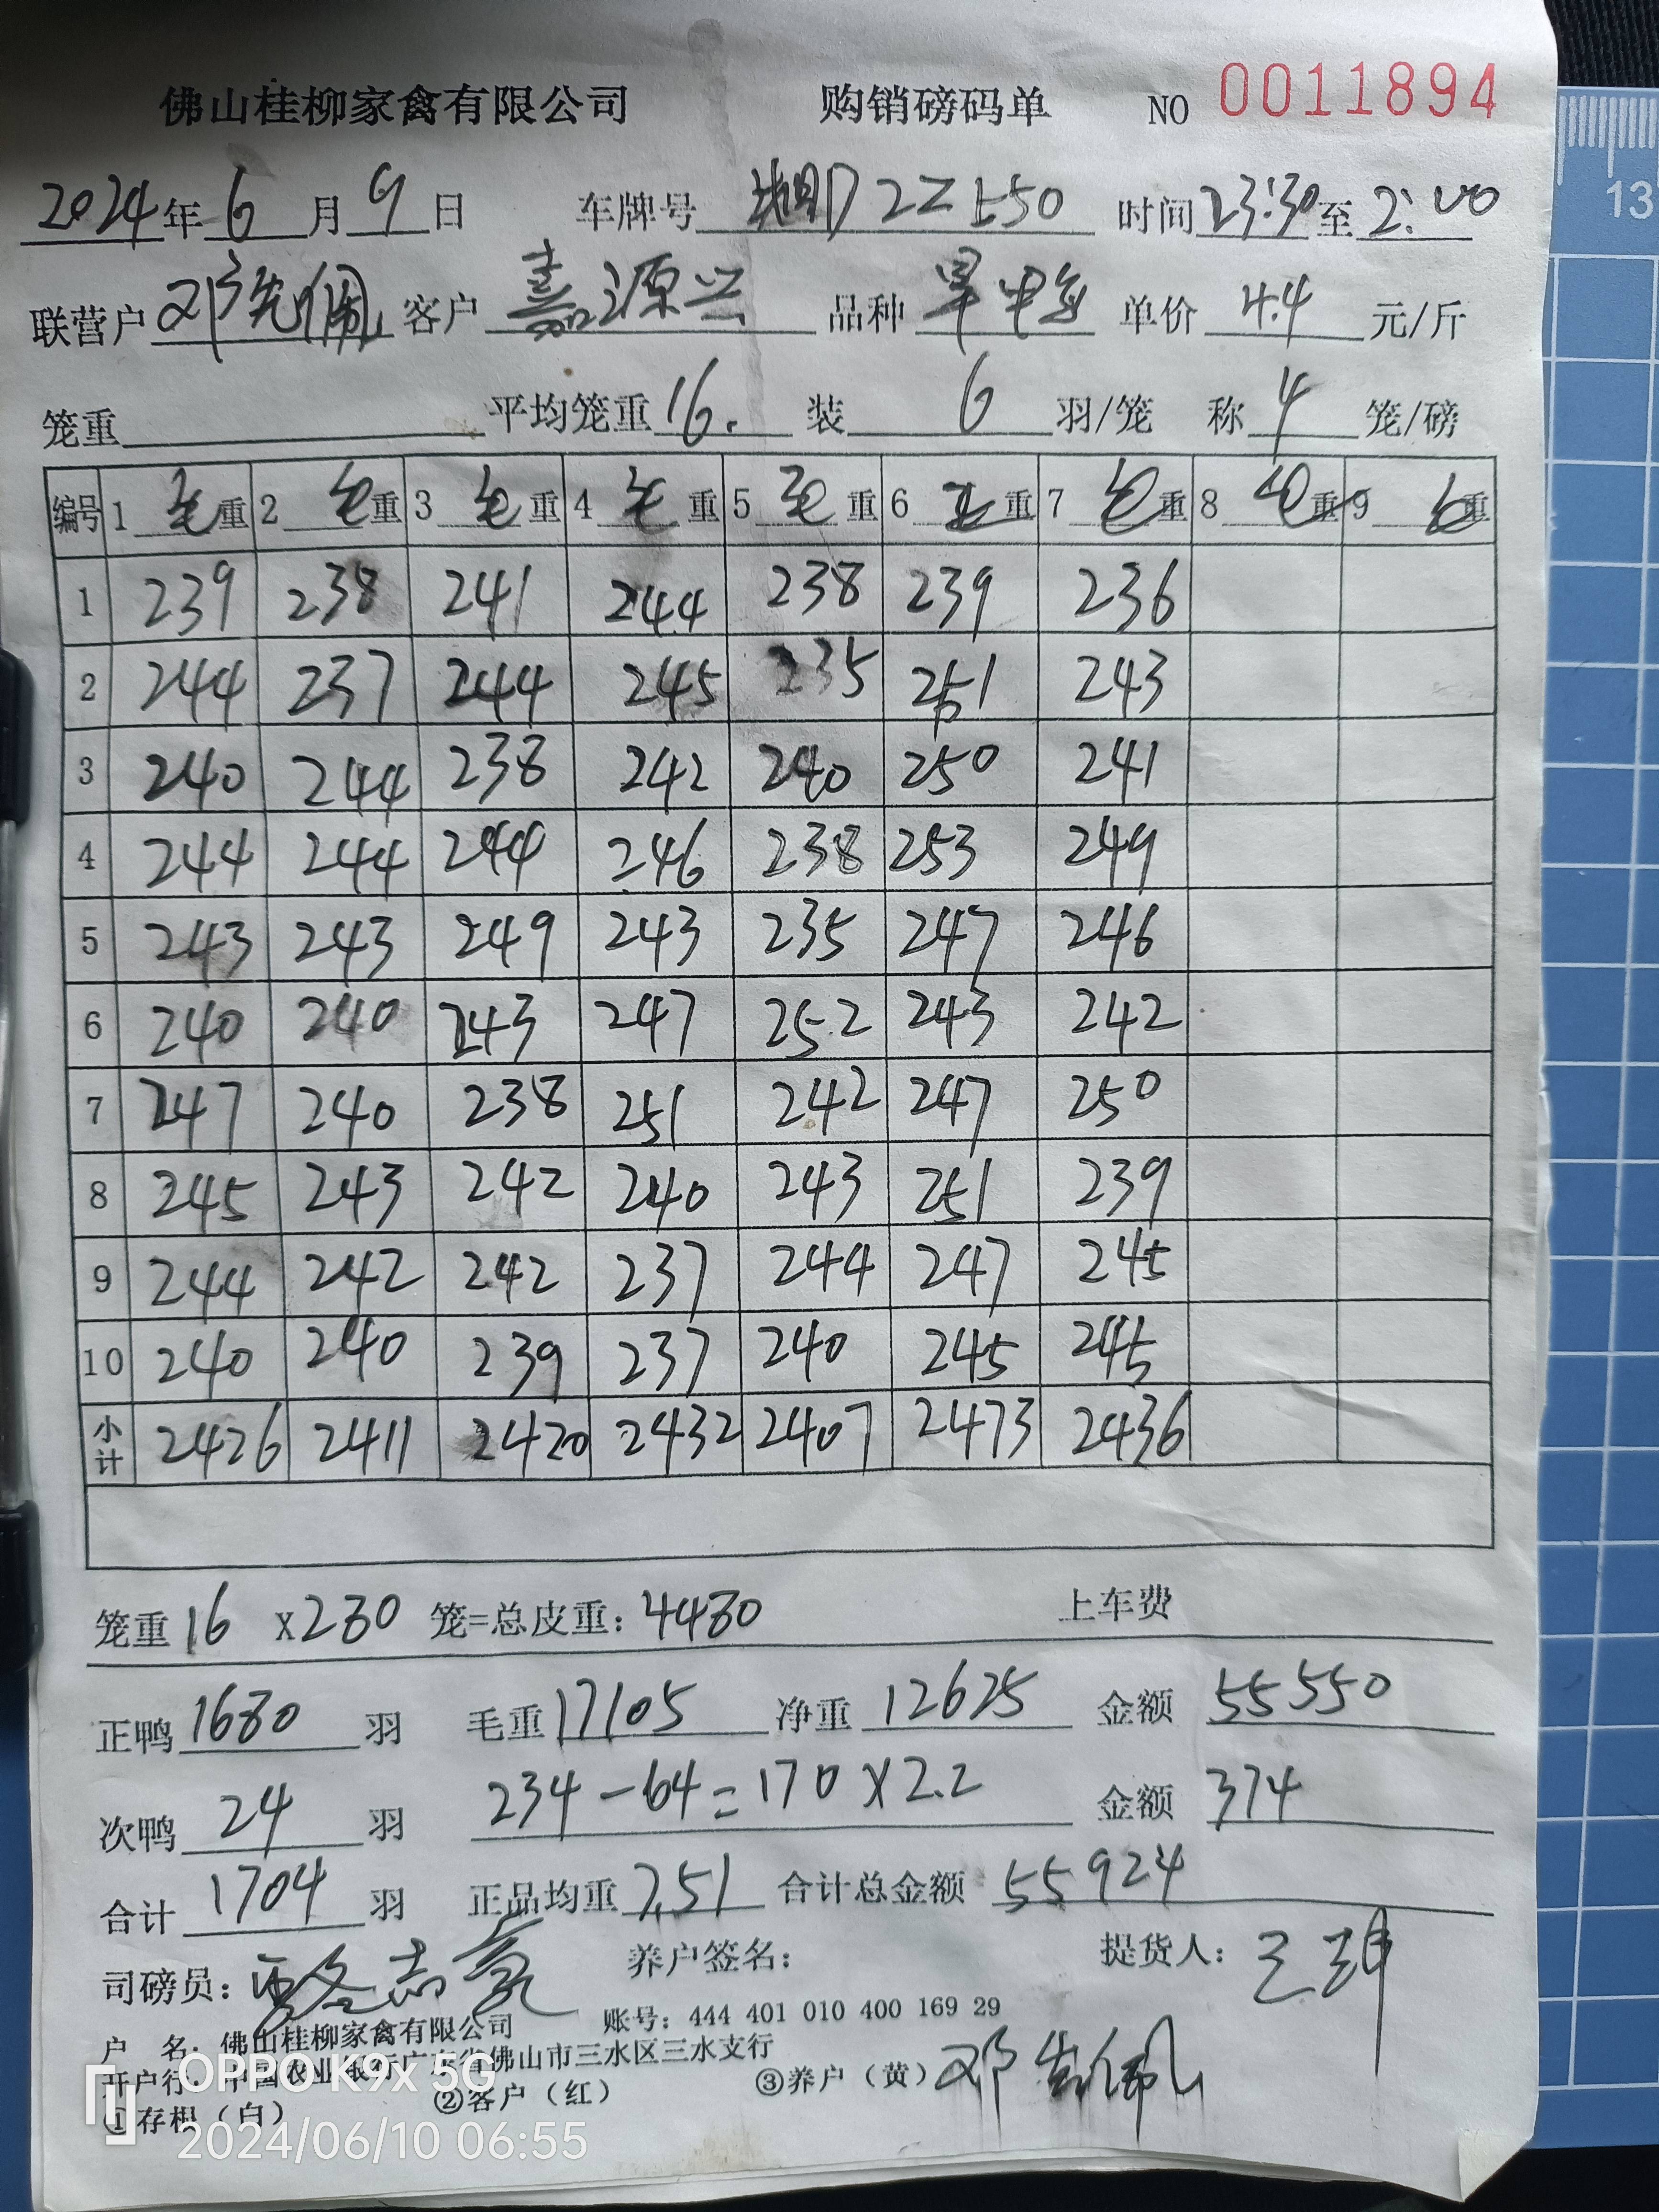 佛山桂柳家禽有限公司 购销磅码单 NO 0011894
2024年6月9日 车牌号 2Z550 时间23:30至2:00
联营户邓 客户嘉源兴 品种 单价4.4元/斤
笼重 平均笼重16. 装6羽/笼 称4笼/磅
编号 1毛重 2毛重 3毛重 4毛重 5毛重 6毛重 7毛重 8毛重 9毛重
1 239 238 241 244 238 239 236
2 244 237 244 245 235 251 243
3 240 244 238 242 240 250 241
4 244 244 244 246 238 253 249
5 243 243 249 243 235 247 246
6 240 240 243 247 252 243 242
7 247 240 238 251 242 247 250
8 245 243 242 240 243 251 239
9 244 242 242 237 244 247 245
10 240 240 239 237 240 245 245
小计 2426 2411 2420 2432 2407 2473 2436
笼重16 X280 笼=总皮重:4480 上车费
正鸭1680羽 毛重17105 净重12625 金额55550
次鸭24羽 234-64=170X2.2 金额374
合计1704羽 正品均重7.51 合计总金额55924
司磅员: 志 养户签名: 提货人:王
户 名:佛山桂柳家禽有限公司 账号:444 401 010 400 169 29
开户行:中国农业银行广东省佛山市三水区三水支行
①存根(白) ②客户(红) ③养户(黄) 邓
OPPO K9x 5G
2024/06/10 06:55